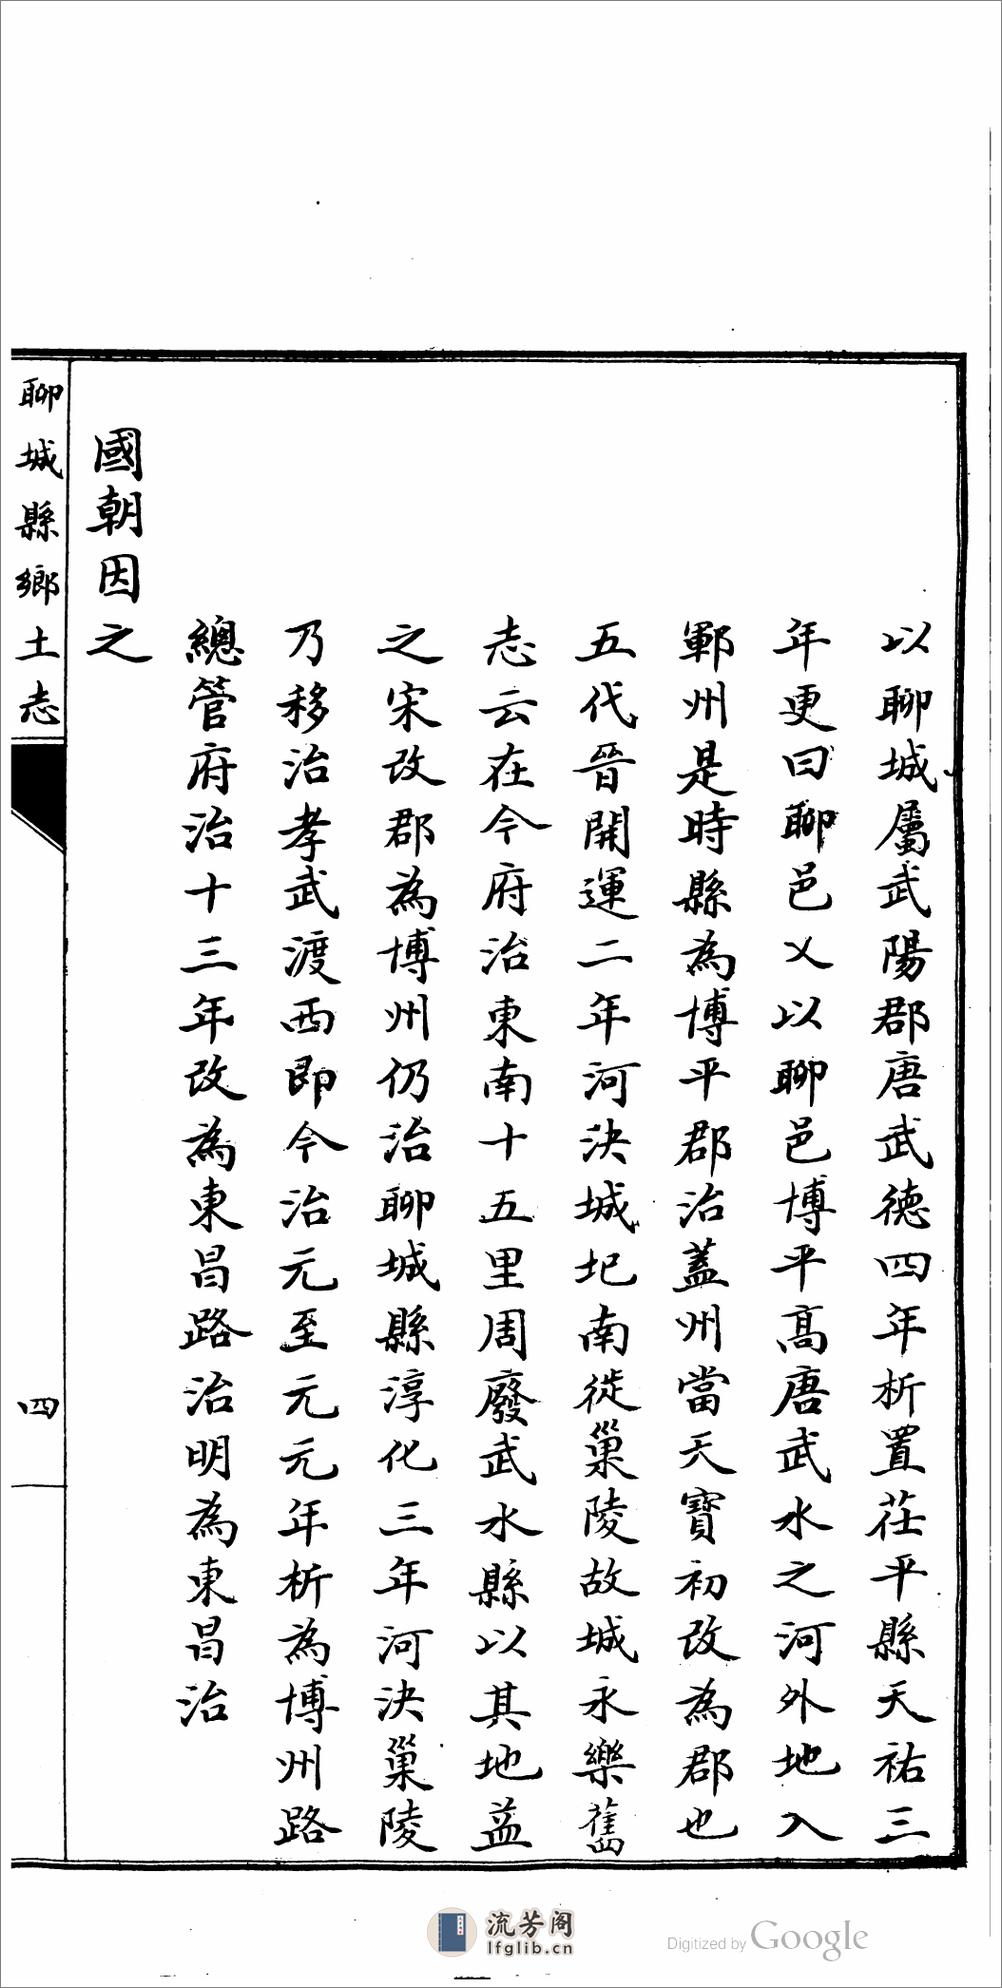 以聊城屬武陽郡唐武德四年析置茌平縣天祐三
年更曰聊邑乂以聊邑博平高唐武水之河外地入
鄆州是時縣為博平郡治蓋州當天寶初改為郡也
五代晉開運二年河決城圮南徙巢陵故城永樂舊
志云在今府治東南十五里周廢武水縣以其地益
之宋改郡為博州仍治聊城縣淳化三年河決巢陵
乃移治孝武渡西即今治元至元元年析為博州路
總管府治十三年改為東昌路治明為東昌治
國朝因之
聊城縣鄉土志
四
流芳阁
lfglib.cn
Digitized by Google